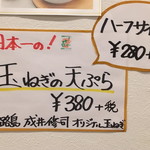 日本一の!
玉ねぎの天ぷら
¥380+税
路島 成井修司 オリジナル玉ねぎ
ハーフサイ
¥280+